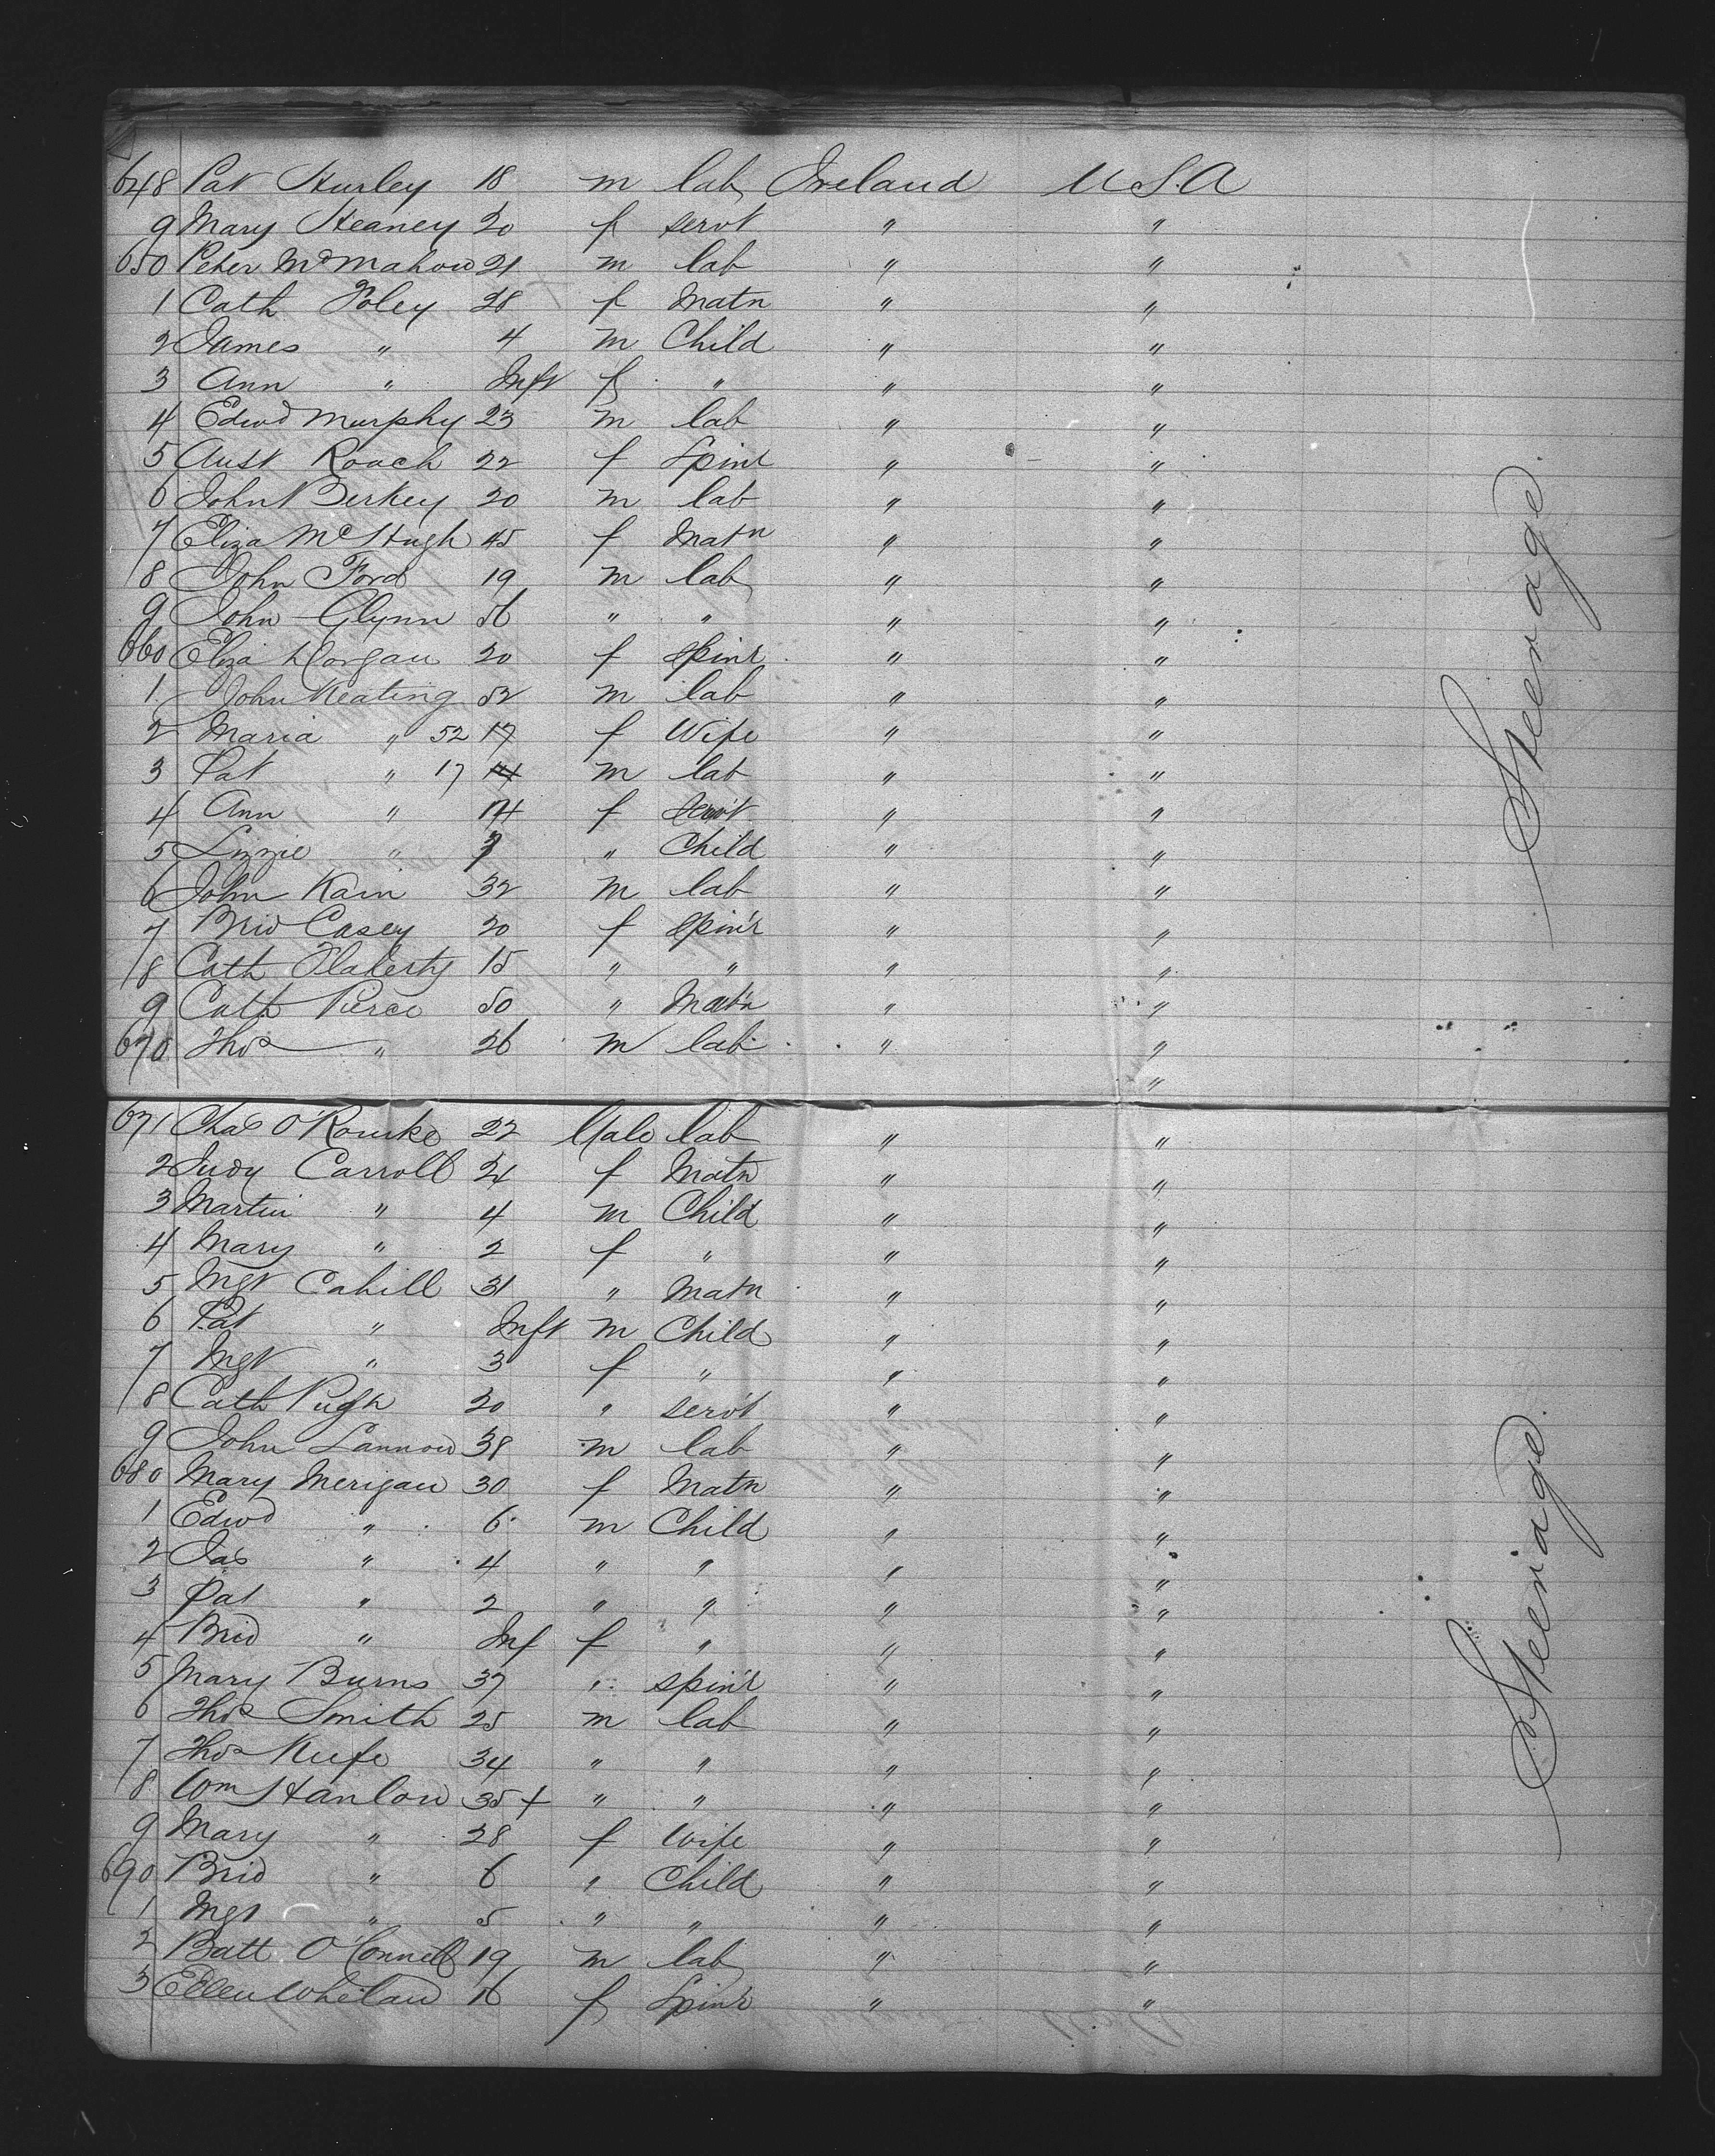 648 Pat Hurley 18 m lab Ireland U.S.A
9 Mary Heaney 20 f servt " "
650 Peter McMahon 21 m lab " "
1 Cath Foley 28 f Matn " "
2 James " 4 m Child " "
3 Ann " Inft f " " "
4 Edwd Murphy 23 m lab " "
5 Aust Roach 22 f Spinr " "
6 John Berkey 20 m lab " "
7 Eliza McHugh 45 f Matn " "
8 John Ford 19 m lab " "
9 John Glynn 56 " " " "
660 Eliza Horgan 20 f Spinr " "
1 John Keating 52 m lab " "
2 Maria " 52 17 f Wife " "
3 Pat " 17 14 m lab " "
4 Ann " 14 f Servt " "
5 Lizzie " 7 " Child " "
6 John Kain 32 m lab " "
7 Brid Casey 20 f Spin'r " "
8 Cath Flaherty 15 " " " "
9 Cath Pierce 50 " Mat'n " "
670 Thos " 26 m lab " "
"
671 Chas O'Rourke 22 Male lab " "
2 Judy Carroll 24 f Matn " "
3 Martin " 4 m Child " "
4 Mary " 2 f " " "
5 Mgt Cahill 31 " Matn " "
6 Pat " Inft m Child " "
7 Mgt " 3 f " " "
8 Cath Pugh 20 " serv't " "
9 John Lannon 38 m lab " "
680 Mary Merigan 30 f Matn " "
1 Edwd " 6 m Child " "
2 Jas " 4 " " " "
3 Pat " 2 " " " "
4 Brid " Inf f " " "
5 Mary Burns 37 " spin'r " "
6 Thos Smith 25 m lab " "
7 Thos Keefe 34 " " " "
8 Wm Hanlon 35 + " " " "
9 Mary " 28 f Wife " "
690 Brid " 6 " Child " "
1 Mgt " 5 " " " "
2 Batt O'Connell 19 m lab " "
3 Ellen Whelan 16 f Spin'r " "
Steerage
Steerage